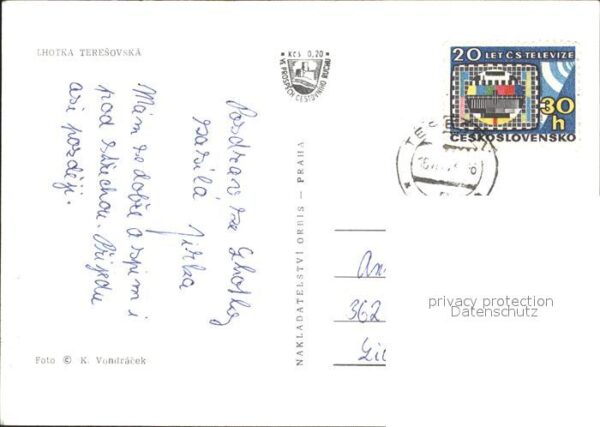 LHOTKA TEREŠOVSKÁ
KČS 0,20
VE PROSPĚCH CESTOVNÍHO RUCHU
20 LET ČS TELEVIZE
30 h
ČESKOSLOVENSKO
Pozdrav ze Lhotky
zasílá Jirka
Mám se dobře a spím i
pod střechou. Přijedu
asi později.
NAKLADATELSTVÍ ORBIS – PRAHA
362
privacy protection
Datenschutz
Foto © K. Vondráček